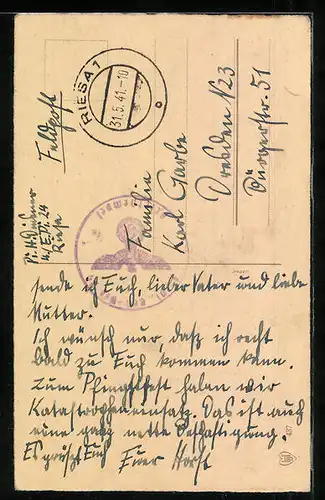 Feldpost
RIESA 1
31.5.41.-10
Familie
Karl Garbe
Dresden N23
Bürgerstr. 51
Riesa
sende ich Euch, lieber Vater und liebe
Mutter.
Ich wünsch nur, daß ich recht
bald zu Euch kommen kann.
Zum Pfingstfest haben wir
Katastropheneinsatz. Das ist auch
eine ganz nette Beschäftigung.
Es grüßt Euch Euer Horst